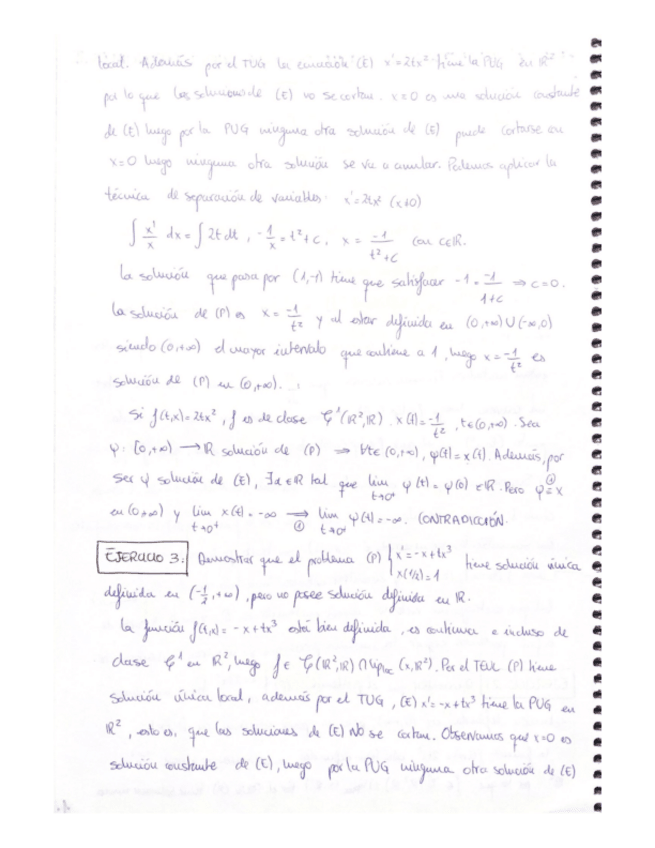 local. Además por el TUG la ecuación (E) x' = 2tx² tiene la PUG en ℝ²
por lo que las soluciones de (E) no se cortan. x=0 es una solución constante
de (E) luego por la PUG ninguna otra solución de (E) puede cortarse en
x=0 luego ninguna otra solución se va a anular. Podemos aplicar la
técnica de separación de variables: x'=2tx² (x≠0)
∫ x'/x dx = ∫ 2t dt , -1/x = t²+c , x = -1/(t²+c) con c∈ℝ.
La solución que pasa por (1,-1) tiene que satisfacer -1 = -1/(1+c) ⇒ c=0.
La solución de (P) es x = -1/t² y al estar definida en (0,+∞)∪(-∞,0)
siendo (0,+∞) el mayor intervalo que contiene a 1, luego x = -1/t² es
solución de (P) en (0,+∞).
Si f(t,x)=2tx², f es de clase C¹(ℝ²,ℝ). x(t) = -1/t², t∈(0,+∞). Sea
φ: [0,+∞) → ℝ solución de (P) ⇒ ∀t∈(0,+∞), φ(t)=x(t). Además, por
ser φ solución de (E), ∃α∈ℝ tal que lim t→0⁺ φ(t) = φ(0) ∈ℝ. Pero φ ①= x
en (0,+∞) y lim t→0⁺ x(t) = -∞ ⇒① lim t→0⁺ φ(t) = -∞. CONTRADICCIÓN.
EJERCICIO 3: Demostrar que el problema (P) { x' = -x+tx³ x(1/2)=1 tiene solución única
definida en (-1/2,+∞), pero no posee solución definida en ℝ.
La función f(t,x) = -x+tx³ está bien definida, es continua e incluso de
clase C¹ en ℝ², luego f ∈ C(ℝ²,ℝ) ∩ Lip loc (x,ℝ²). Por el TEUL (P) tiene
solución única local, además por el TUG, (E) x' = -x+tx³ tiene la PUG en
ℝ², esto es, que las soluciones de (E) NO se cortan. Observamos que x=0 es
solución constante de (E), luego por la PUG ninguna otra solución de (E)